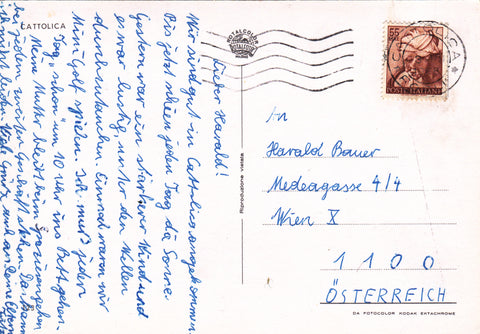 CATTOLICA
Lieber Harald!
Wir sind gut in Cattolica angekommen.
Bis jetzt schien jeden Tag die Sonne.
Gestern war ein starker Wind und
es war lustig, unter den Wellen
durchzutauchen. Einmal waren wir
Mini Golf spielen. Ich muß jeden
Tag schon um 10 Uhr ins Bett gehen.
Meine Mutter bleibt beim Spazierengehen
bei jedem zweiten Geschäft stehen. Da kann
Viele Grüße und an Deine Eltern
ROTALCOLOR
Riproduzione vietata
POSTE ITALIANE
An
Harald Bauer
Medeagasse 4/4
Wien X
1100
ÖSTERREICH
DA FOTOCOLOR KODAK EKTACHROME